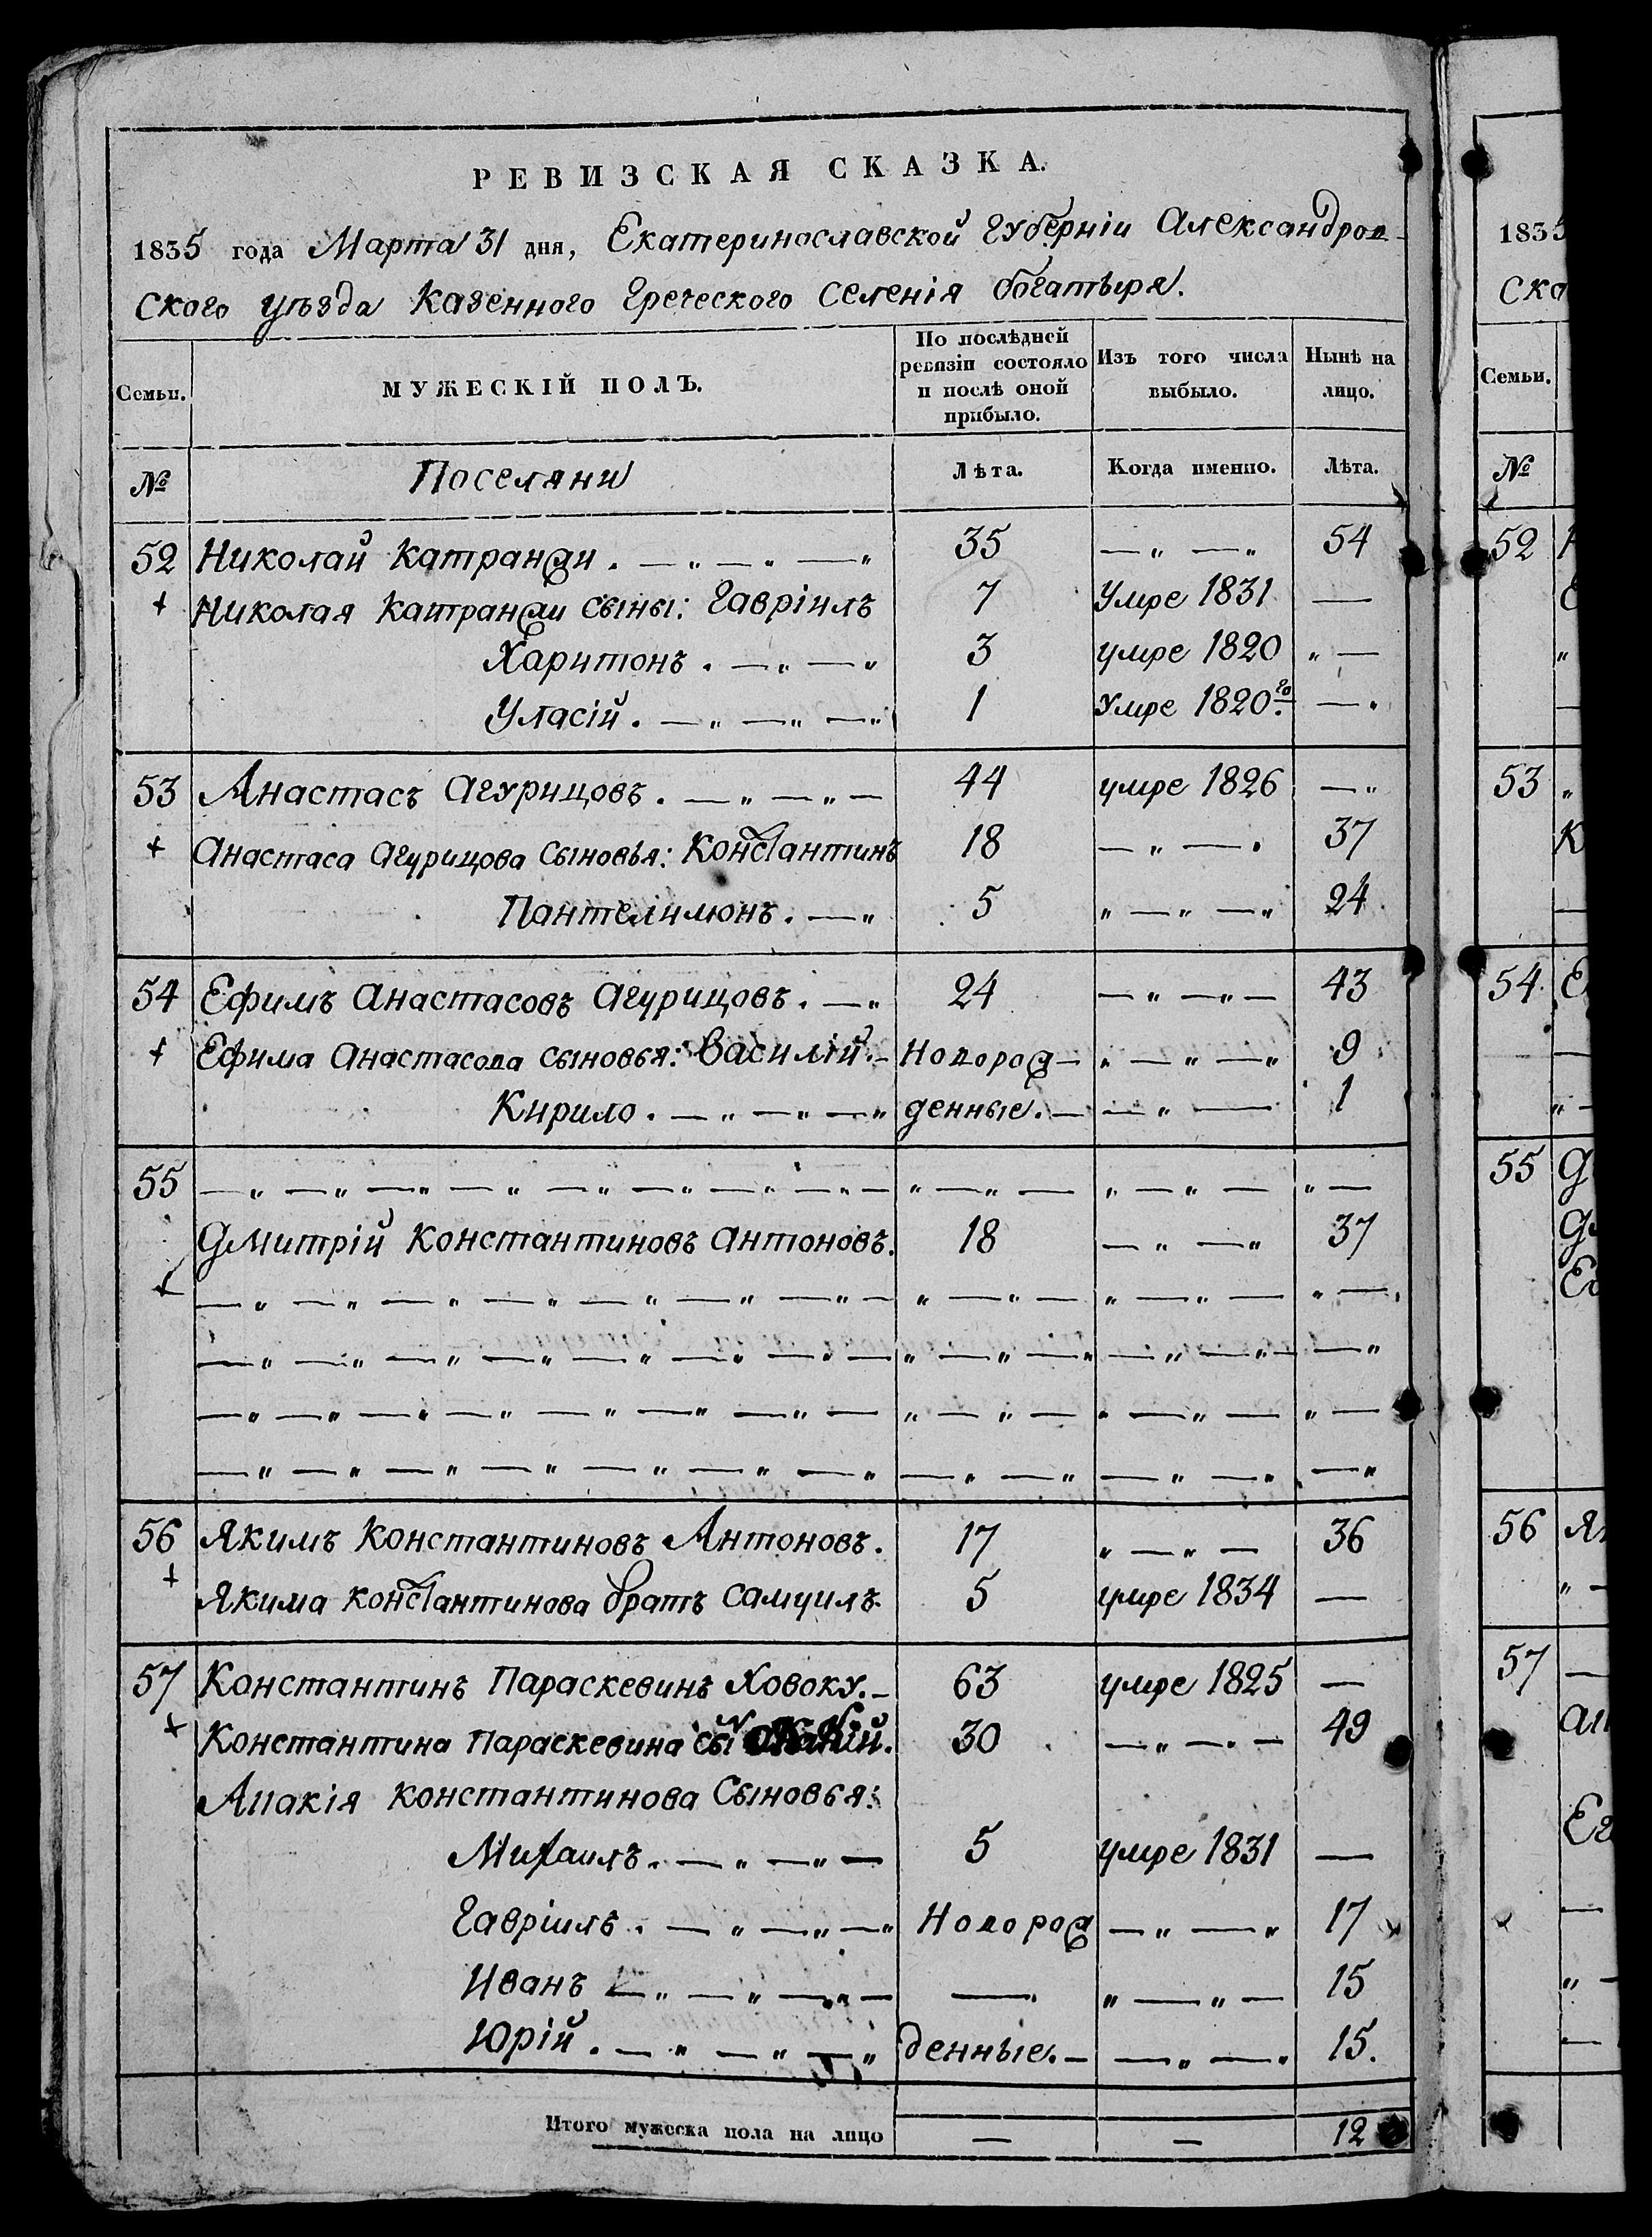 РЕВИЗСКАЯ СКАЗКА.
1835 года Марта 31 дня, Екатеринославской Губерніи Александров-
ского уѣзда Казенного Греческого Селенія Богатыря.
Семьи. МУЖЕСКІЙ ПОЛЪ. По послѣдней ревизіи состояло и послѣ оной прибыло. Изъ того числа выбыло. Нынѣ на лицо.
№ Поселяни Лѣта. Когда именно. Лѣта.
52 Николай Катранджи. — „ — „ — „ 35 — „ — „ 54
+ Николая Катранджи сыны: Гавріилъ 7 Умре 1831 —
Харитонъ. — „ — „ 3 умре 1820 „ —
Уласій. — „ — „ — „ 1 Умре 1820го. — „
53 Анастасъ Агурицовъ. — „ — „ — 44 умре 1826 — „
+ Анастаса Агурицова сыновья: Константинъ 18 — „ — „ 37
Пантелимонъ. — „ 5 „ — „ — „ 24
54 Ефимъ Анастасовъ Агурицовъ. — „ 24 — „ — „ — 43
+ Ефима Анастасова сыновья: Василій. — Новорож— „ — „ — „ 9
Кирило. — „ — „ — „ денные. — — „ — 1
55 — „ — „ — „ — „ — „ — „ — „ — „ — „ — „ — „ — „ — „ —
Дмитрій Константиновъ Антоновъ. 18 — „ — „ 37
+ — „ — „ — „ — „ — „ — „ — „ — „ — „ — „ — „ — „ —
— „ — „ — „ — „ — „ — „ — „ — „ — „ — „ — „ — „ — — „
— „ — „ — „ — „ — „ — „ — „ — „ — „ — „ — „ — „ —
— „ — „ — „ — „ — „ — „ — „ — „ — „ — „ — „ — „
56 Якимъ Константиновъ Антоновъ. 17 „ — „ — 36
+ Якима Константинова братъ Самуилъ. 5 умре 1834 —
57 Константинъ Параскевинъ Ховоку. — 63 умре 1825 —
+ Константина Параскевина сынъ Акакій. 30 — „ — „ — 49
Апакія Константинова Сыновья:
Михаилъ. — „ — „ — 5 умре 1831 —
Гавріилъ. — „ — „ — „ Новорож — „ — „ 17
Иванъ — „ — „ — „ — — „ — „ — 15
Юрій. — „ — „ — „ денные. — — „ — „ 15.
Итого мужеска пола на лицо — — 12
1835
ско
Семьи.
№
52
53
54
55
56
57